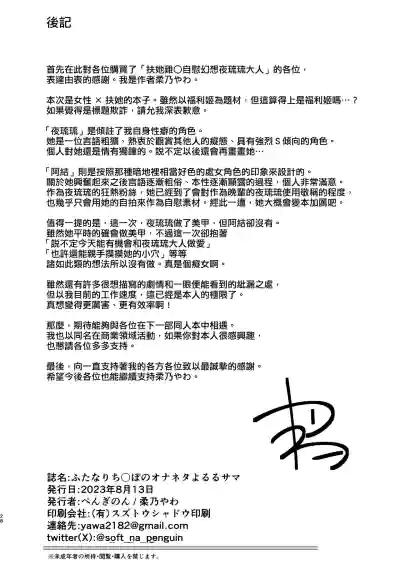 後記
首先在此對各位購買了「扶她雞〇自慰幻想夜琉琉大人」的各位，
表達由衷的感謝。我是作者柔乃やわ。
本次是女性 × 扶她的本子。雖然以福利姬為題材，但這算得上是福利姬嗎…？
如果覺得是標題欺詐，請允我深表歉意。
「夜琉琉」是傾註了我自身性癖的角色。
她是一位言語粗獷，熱衷於觀賞其他人的癡態、具有強烈 S 傾向的角色。
個人對她還是情有獨鐘的。說不定以後還會再畫畫她…
「阿結」則是按照那種暗地裡相當好色的處女角色的印象來設計的。
關於她興奮起來之後言語逐漸粗俗、本性逐漸顯露的過程，個人非常滿意。
作為夜琉琉的狂熱粉絲，她已經到了會對作為晚輩的夜琉琉使用敬稱的程度，
也幾乎只會用她的自拍來作為自慰素材。經此一遭，她大概會變本加厲吧。
值得一提的是，這一次，夜琉琉做了美甲，但阿結卻沒有。
雖然她平時的確會做美甲，不過這一次卻抱著
「說不定今天能有機會和夜琉琉大人做愛」
「也許還能親手摸摸她的小穴」等等
諸如此類的想法所以沒有做。真是個癡女啊。
雖然還有許多很想描寫的劇情和一眼便能看到的紕漏之處，
但以我目前的工作速度，這已經是本人的極限了。
真想變得更厲害、更有效率啊！
那麼，期待能夠與各位在下一部同人本中相遇。
我也以同名在商業領域活動，如果你對本人很感興趣，
也懇請各位多多支持。
最後，向一直支持著我的各方各位致以最誠摯的感謝。
希望今後各位也能繼續支持柔乃やわ。
誌名:ふたなりち〇ぽのオナネタよるるサマ
発行日:2023年8月13日
発行者:ぺんぎのん / 柔乃やわ
印刷会社:(有)スズトウシャドウ印刷
連絡先:yawa2182@gmail.com
twitter(X):@soft_na_penguin
※未成年者の所持・閲覧・購入を禁じます。
28